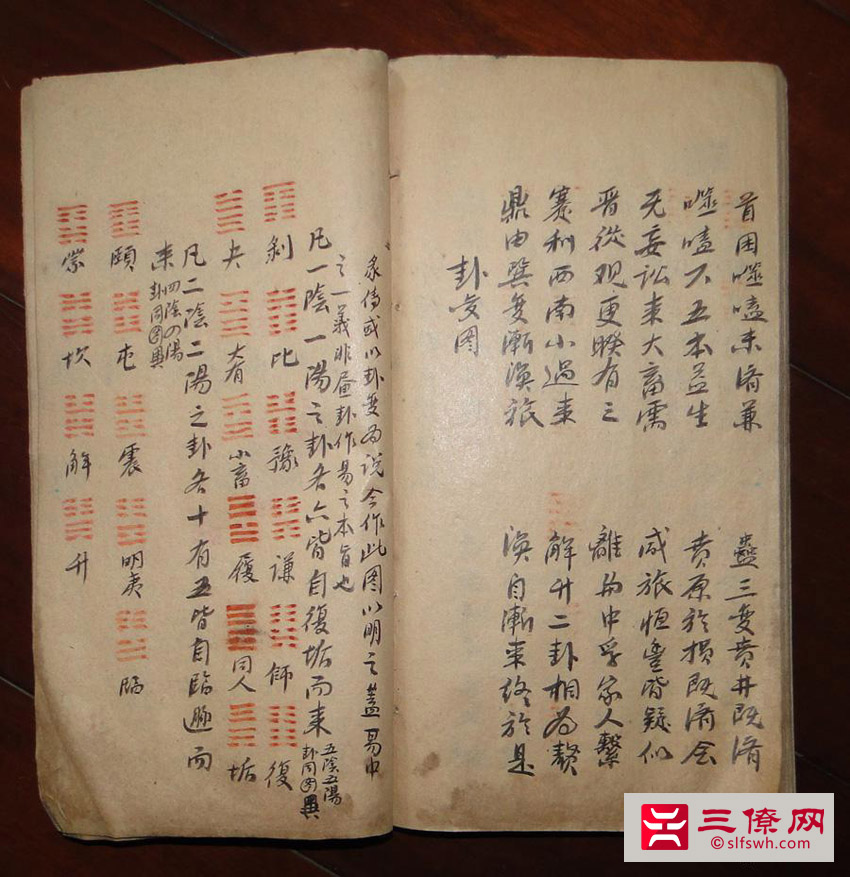 首困噬嗑未濟兼
蠱三變賁井既濟
噬嗑六五本益生
賁原於損既濟会
无妄訟來大畜需
咸旅恒豐皆疑似
晉從观更睽有三
離與中孚家人繫
蹇利西南小過來
解升二卦相為贅
鼎由巽变漸渙旅
渙自漸來終於是
卦变图
彖傳或以卦變為說今作此图以明之蓋易中
之一義非畫卦作易之本旨也
凡一陰一陽之卦各六皆自復垢而来
五陰五陽
卦同图異
剥 比 豫 谦 师 復
夬 大有 小畜 履 同人 垢
凡二陰二陽之卦各十有五皆自臨遯而
來
四陰四陽
卦同图異
頤 屯 震 明夷 臨
蒙 坎 解 升
三僚网
slfswh.com